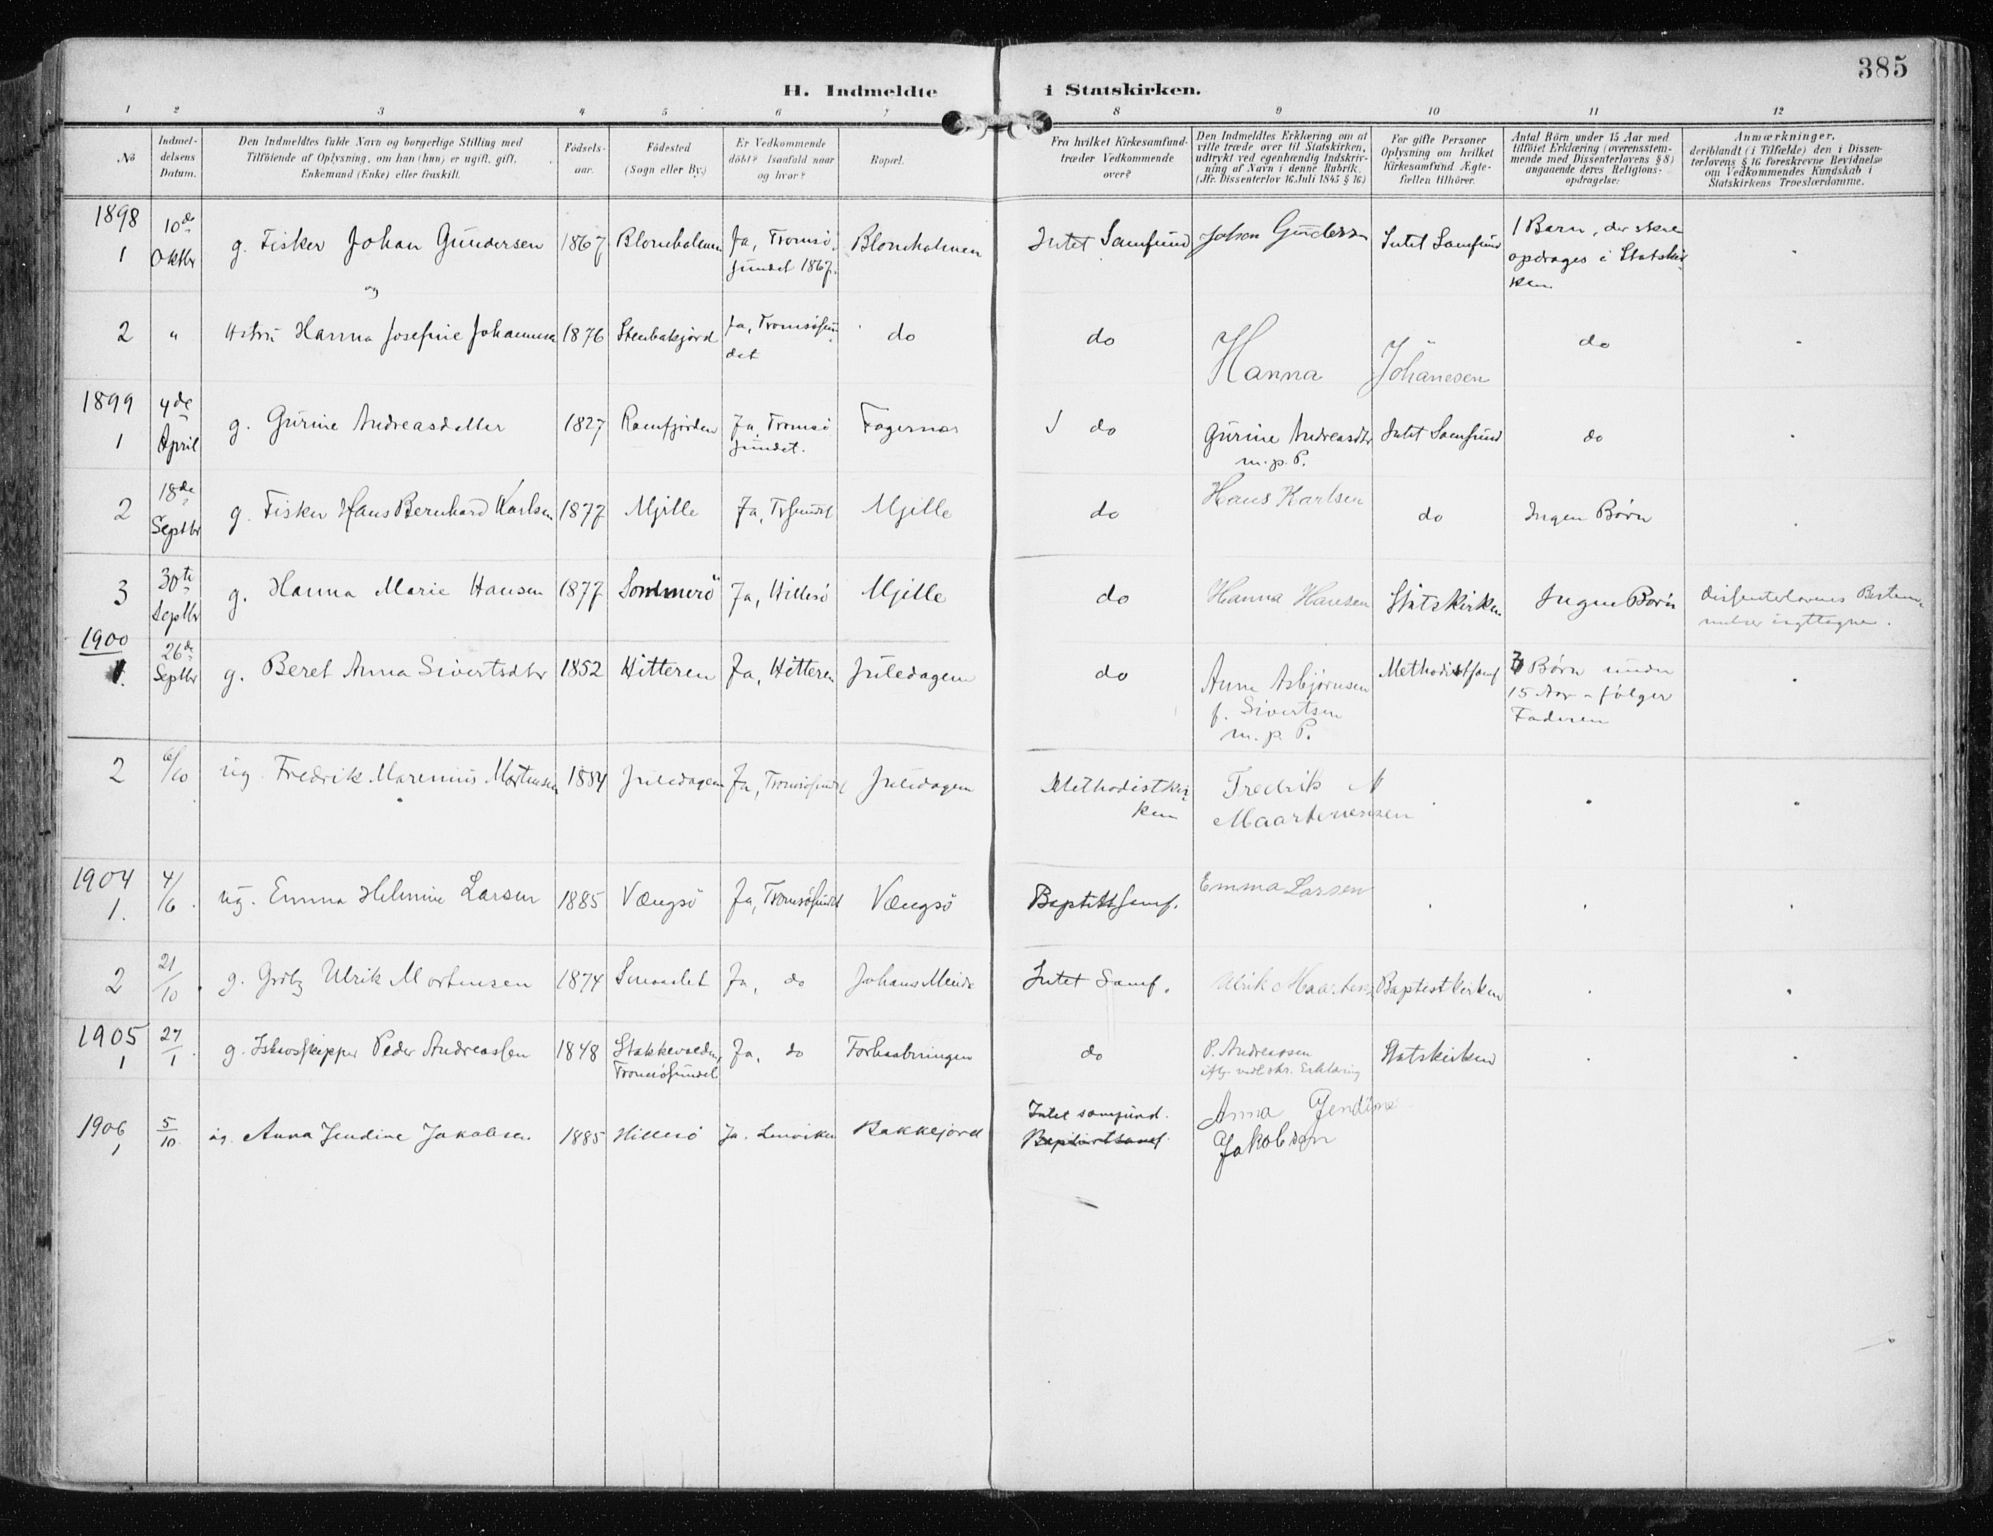 385
H. Indmeldte i Statskirken.
1 2 3 4 5 6 7 8 9 10 11 12
No
Indmel-
delsens
Datum.
Den Indmeldtes fulde Navn og borgerlige Stilling med
Tilföiende af Oplysning, om han (hun) er ugift, gift,
Enkemand (Enke) eller fraskilt.
Födsels-
aar.
Födested
(Sogn eller By.)
Er Vedkommende
döbt? Isaafald naar
og hvor?
Bopæl.
Fra hvilket Kirkesamfund
træder Vedkommende
over?
Den Indmeldtes Erklæring om at
ville træde over til Statskirken,
udtrykt ved egenhændig Indskriv-
ning af Navn i denne Rubrik.
(Jfr. Dissenterlov 16 Juli 1845 § 16)
For gifte Personer
Oplysning om hvilket
Kirkesamfund Ægte-
fællen tilhörer.
Antal Börn under 15 Aar med
tilföiet Erklæring (overensstem-
mende med Dissenterlovens § 8)
angaaende deres Religions-
opdragelse:
Anmærkninger,
deriblandt (i Tilfælde) den i Dissen-
terlovens § 16 foreskrevne Bevidnelse
om Vedkommendes Kundskab i
Statskirkens Troeslærdomme.
1898
1 10de Oktbr g. Fisker Johan Gundersen 1867 Blomholmen Ja, Tromsö-
sundet 1867. Blomholmen Intet Samfund Johan Gundersen Intet Samfund 1 Barn, der skal
opdrages i Statskir-
ken
og
2 " Hstru Hanna Josefine Johannesen 1876 Stenbakjord Ja, Tromsösun-
det do do Hanna Johanesen " do
1899
1 4de April g. Gurine Andreasdatter 1827 Ramfjorden Ja, Tromsö
sundet. Fagernes do Gurine Andreasdtr
m. p. P. Intet Samfund do
2 18de Septbr g. Fisker Hans Bernhard Karlsen 1877 Mjelle Ja, Trsundet Mjelle do Hans Karlsen do Ingen Börn
3 30te Septbr g. Hanna Marie Hansen 1877 Sommerö Ja, Hillesö Mjelle do Hanna Hansen Statskirken Ingen Börn Dissenterlovens Bestem-
melser iagttagne.
1900
1. 26de Septbr g. Beret Anna Sivertsdtr 1852 Hitteren Ja, Hitteren Juledagen do Anne Asbjörnsen
f. Sivertsen
m. p. P. Methodistsamf Börn under
15 Aar - fölger
Faderen
2 6/10 ug. Fredrik Marenius Mortensen 1884 Juledagen Ja, Tromsösundet Juledagen Methodistkir-
ken Fredrik M
Maartenesen
1904
1. 4/6 ug. Emma Helmine Larsen 1885 Vængsö Ja, Tromsösundet Vængsö Baptistsamf. Emma Larsen
2 21/10 g. Grdbr Ulrik Mortensen 1874 Ja, do Intet Samf. Ulrik Baptestkirken
1905
1 27/1 g. Ishavsskipper Peder Andreassen 1848 Stakkevolden,
Tromsösundet Ja, do Forhaabningen do P. Andreassen
iflg. vedl. skr. Erklæring Statskirken
1906
1 5/10 ug. Anna Jendine Jakobsen 1885 Hillesö Ja. Lenviken Bakkejord Intet samfund.
Baptistsamf. Anna Jendine
Jakobsen